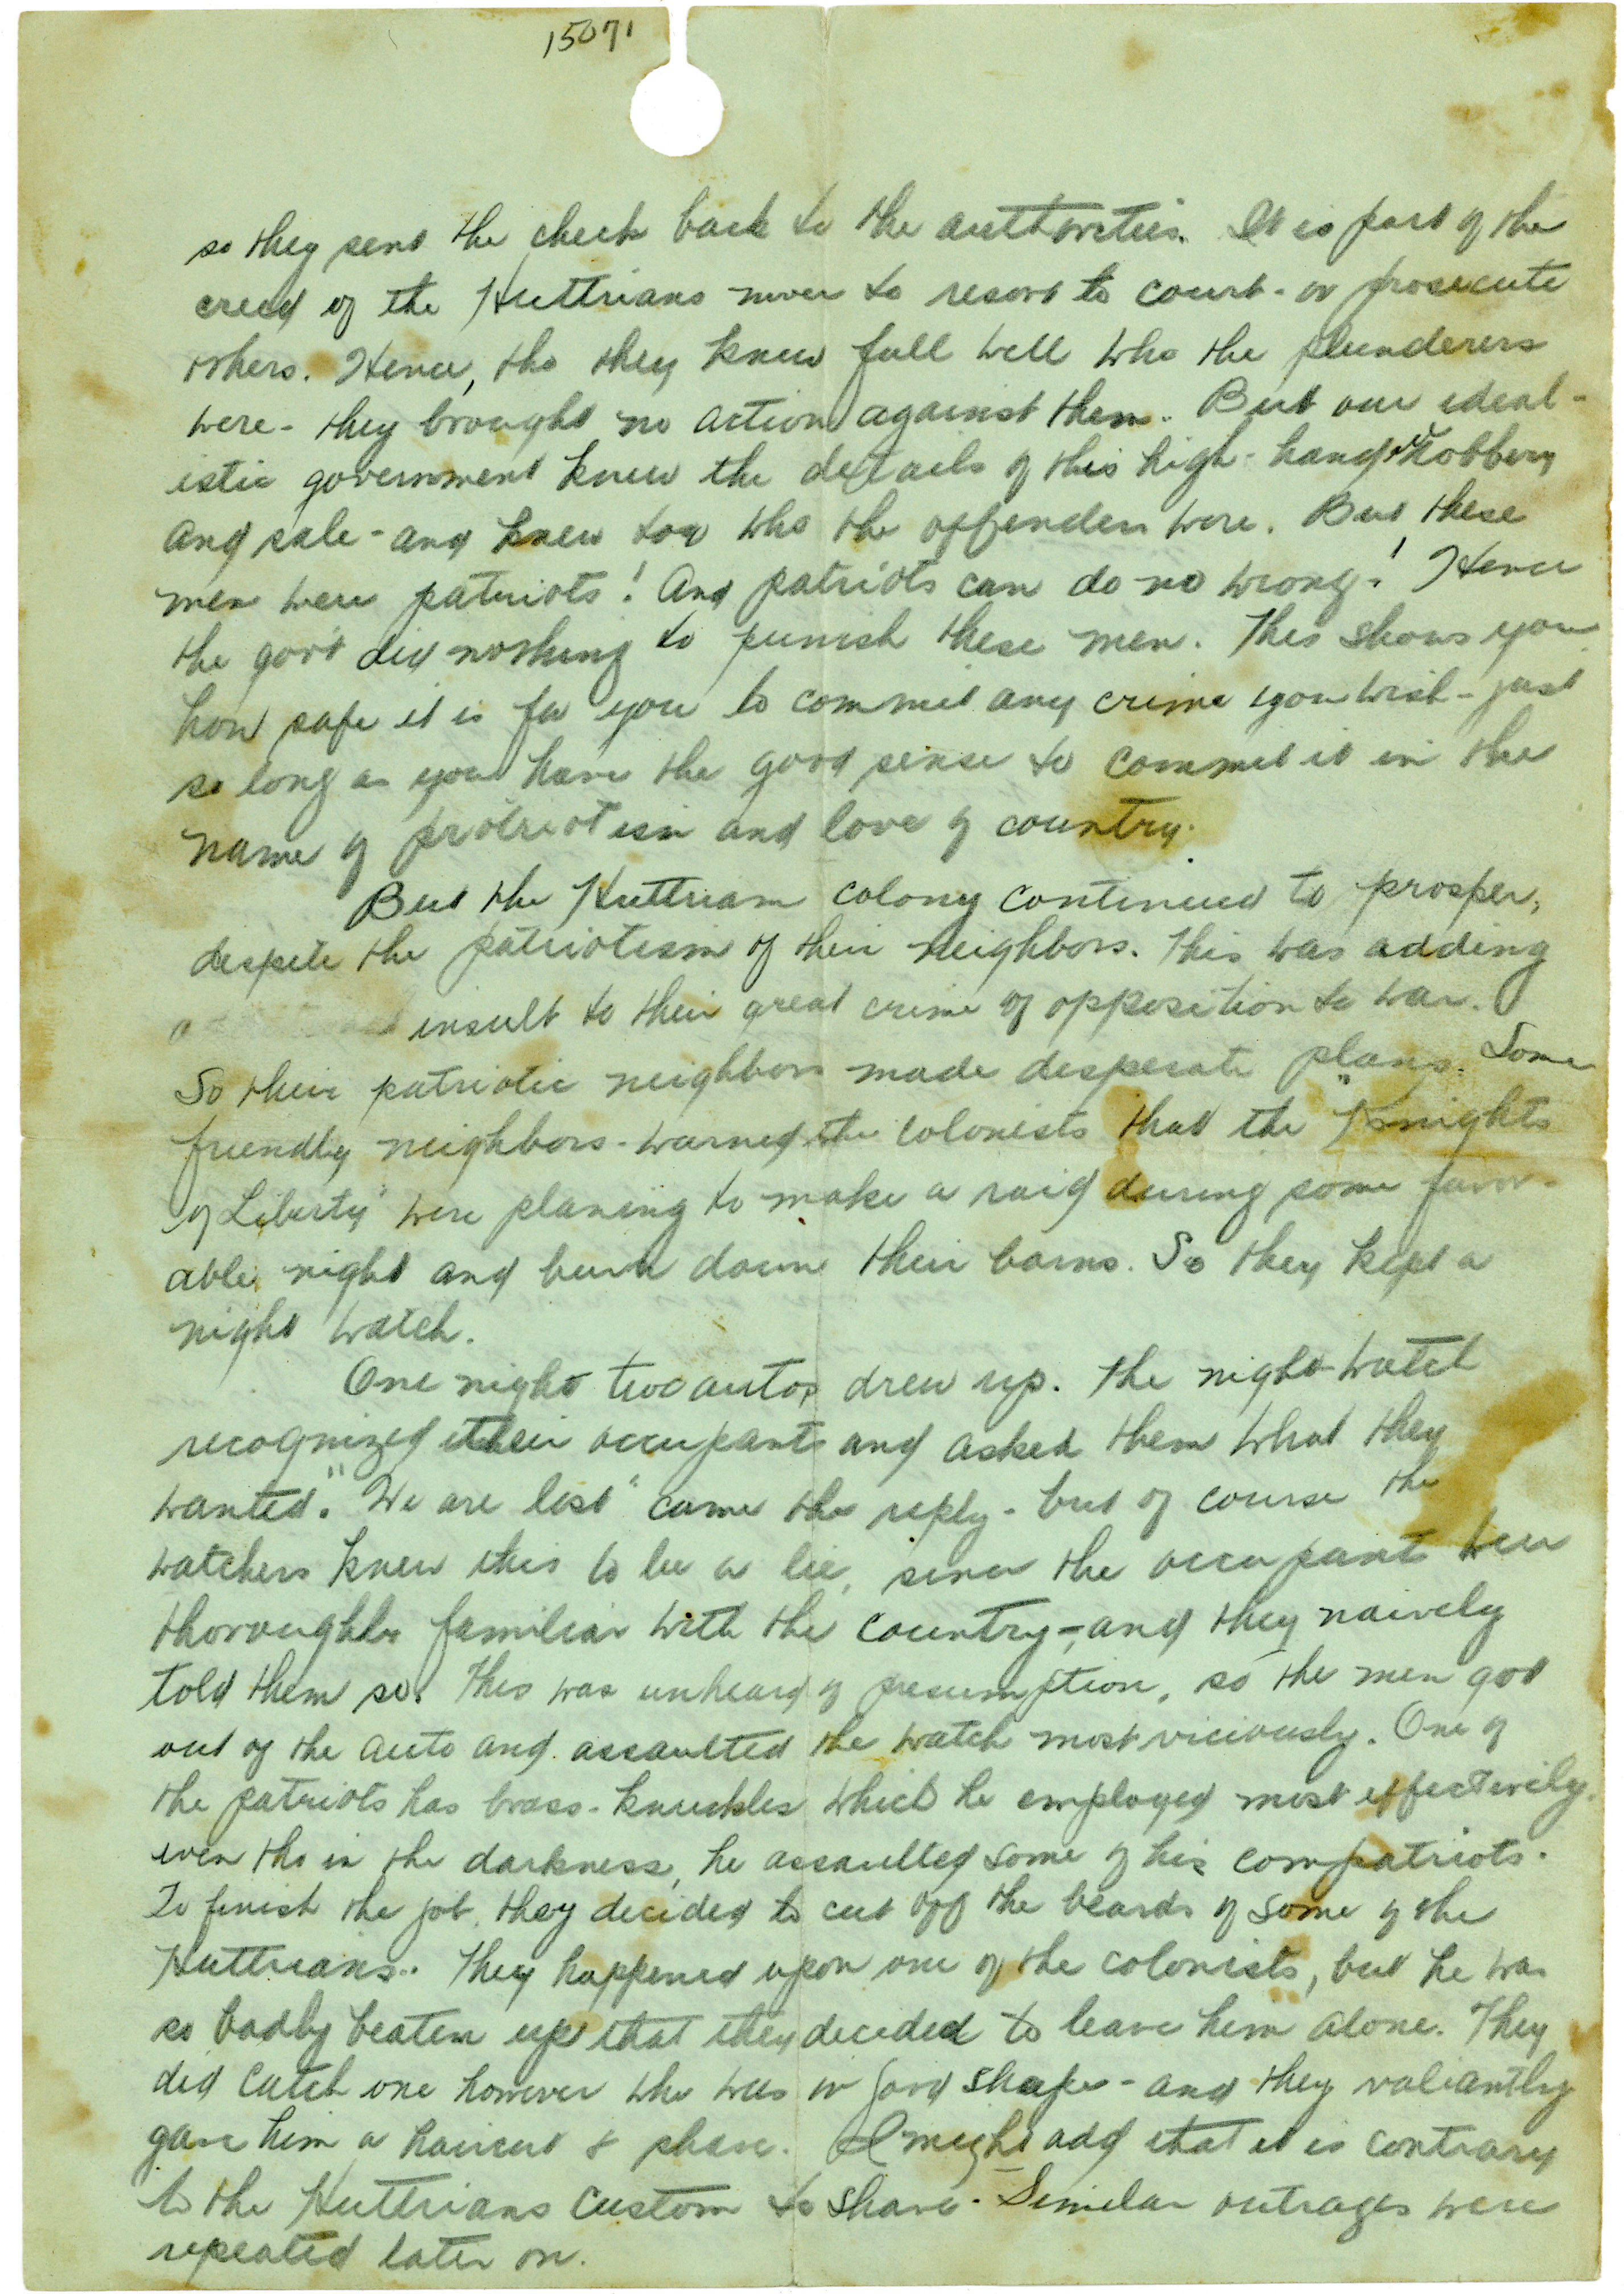 15071
so they sent the check back to the authorities. It is part of the
creed of the Huttrians never to resort to court - or prosecute
others. Hence, tho they knew full well who the plunderers
were - they brought no action against them. But our ideal-
istic government knew the details of this high-handed robbery
and sale - and knew too who the offenders were. But these
men were patriots! And patriots can do no wrong! Hence
the gov't did nothing to punish these men. This shows you
how safe it is for you to commit any crime you wish - just
so long as you have the good sense to commit it in the
name of patriotism and love of country.
But the Huttrian colony continued to prosper,
despite the patriotism of their neighbors. This was adding
insult to their great crime of opposition to war.
So their patriotic neighbors made desperate plans. Some
friendly neighbors - warned the colonists that the "Knights
of Liberty" were planing to make a raid during some favor-
able night and burn down their barns. So they kept a
night watch.
One night two autos drew up. The night-watch
recognized their occupants and asked them what they
wanted. "We are lost" came the reply - but of course the
watchers knew this to be a lie, since the occupants were
thoroughly familiar with the country - and they naively
told them so. This was unheard of presumption, so the men got
out of the auto and assaulted the watch most viciously. One of
the patriots has brass-knuckles which he employed most effectively.
even tho in the darkness, he assaulted some of his compatriots.
To finish the job, they decided to cut off the beards of some of the
Huttrians. They happened upon one of the colonists, but he was
so badly beaten up that they decided to leave him alone. They
did catch one however who was in good shape - and they valiantly
gave him a haircut & shave. I might add that it is contrary
to the Huttrians custom to shave. Similar outrages were
repeated later on.